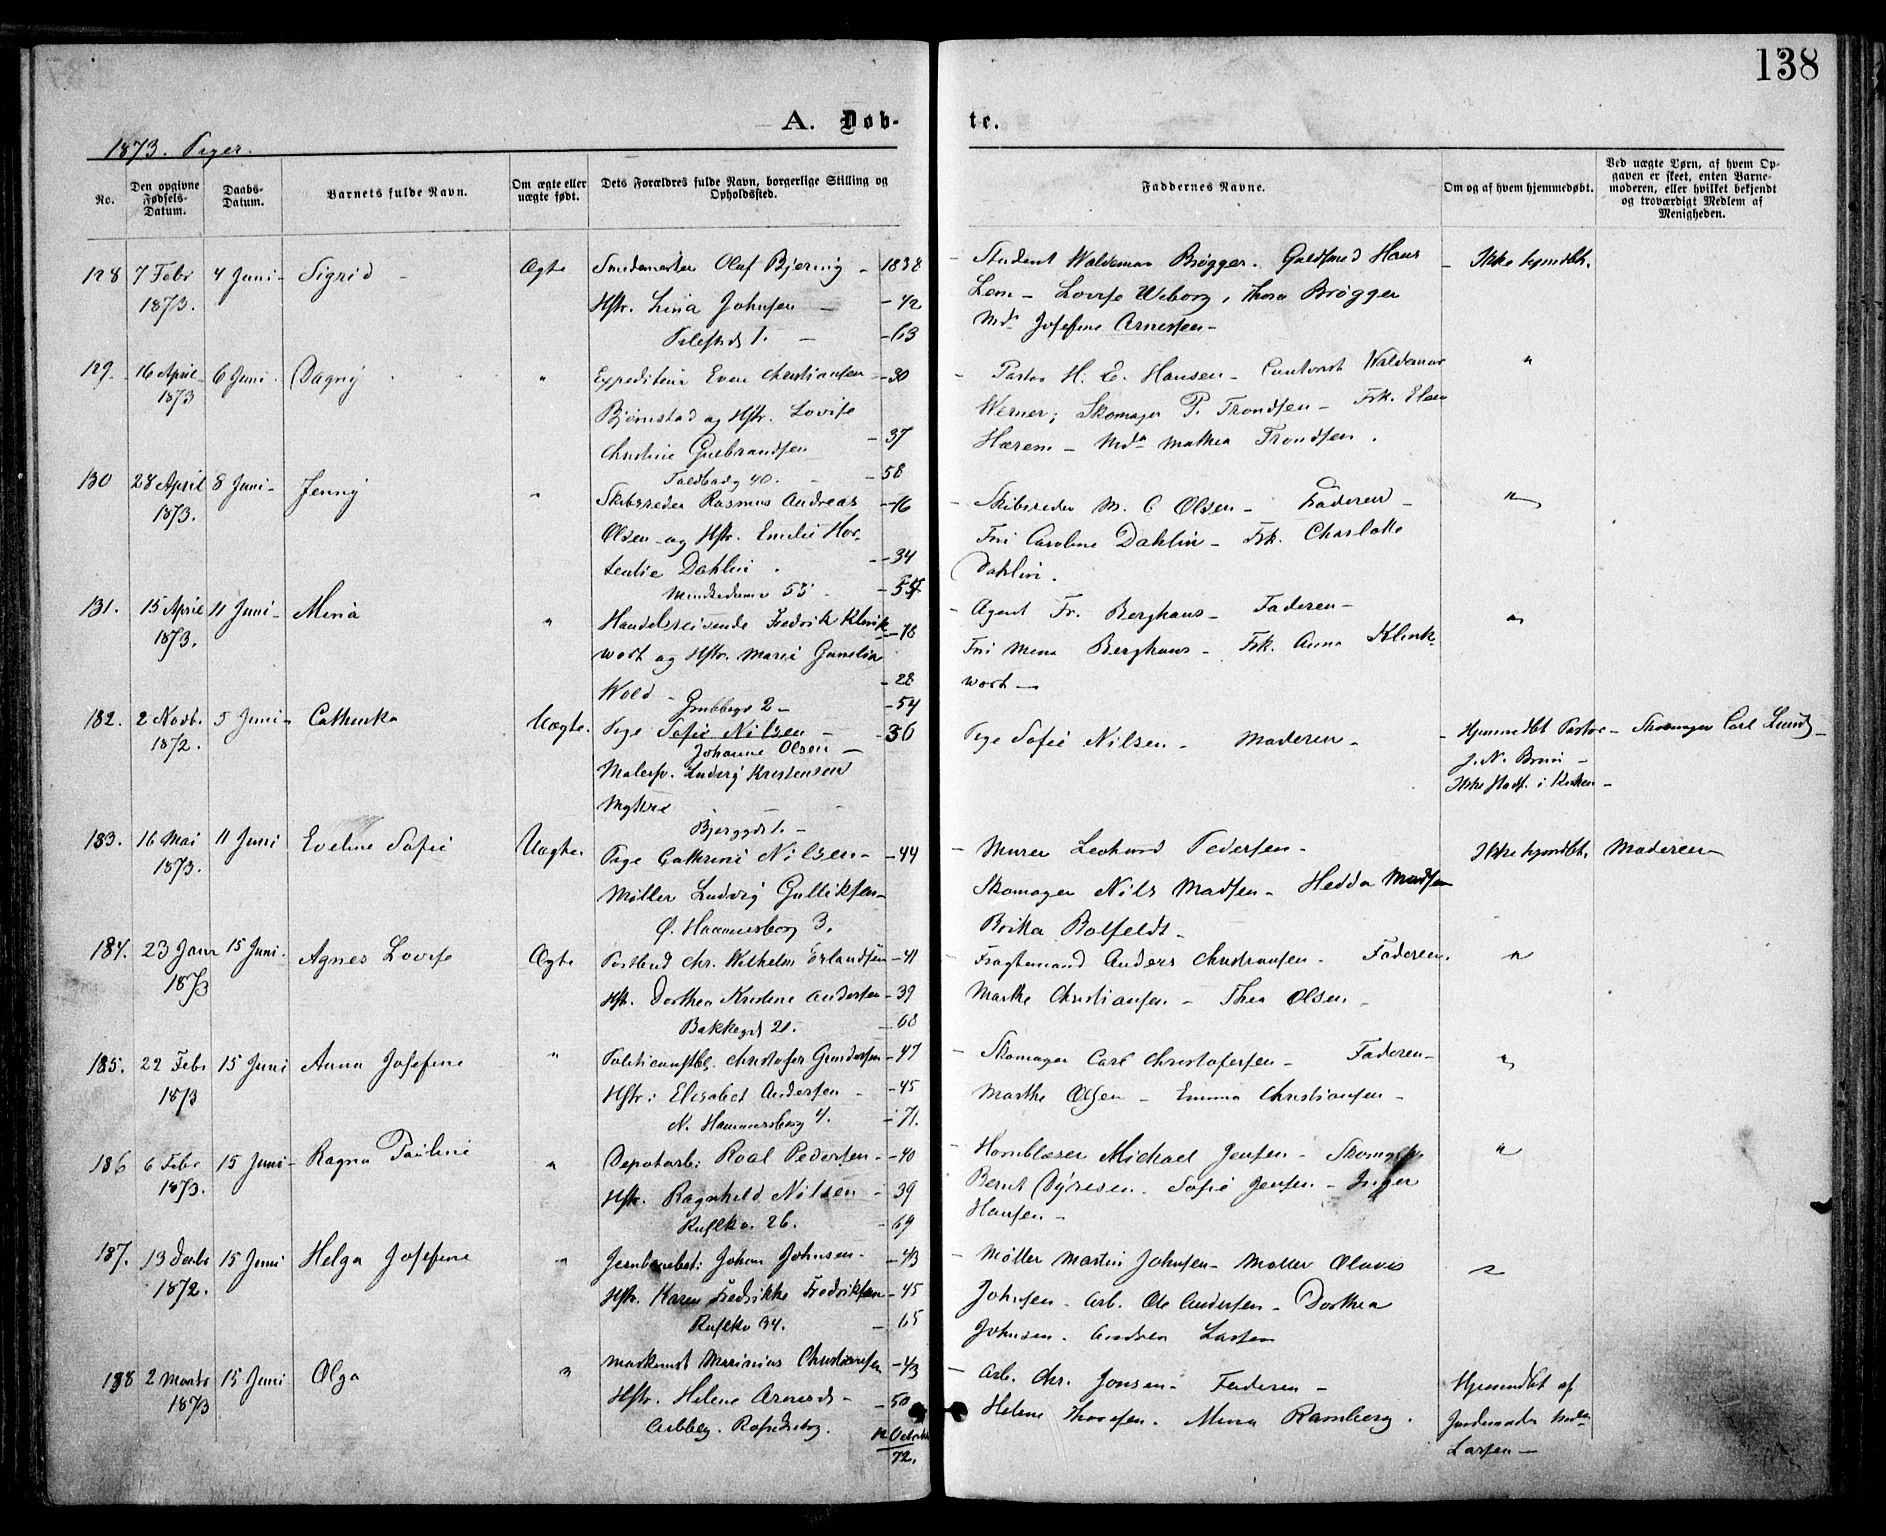 138
A. Døb-
te.
1873. Piger.
No.
Den opgivne Fødsels-Datum.
Daabs-Datum.
Barnets fulde Navn.
Om ægte eller uægte født.
Dets Forældres fulde Navn, borgerlige Stilling og Opholdssted.
Faddernes Navne.
Om og af hvem hjemmedøbt.
Ved uægte Børn, af hvem Opgaven er skeet, enten Barnemoderen, eller hvilket bekjendt og troværdigt Medlem af Menigheden.
128 7 Febr 4 Juni - Sigrid Ægte Smedemester Olaf Bjerrig - 1838 - Student Waldemar Brøgger. Guldsmed Hans - Ikke hjmdbt.
1873. Hstr. Lina Johnsen - 42 Lem - Lovise Wiborg, Thora Brøgger
1. - 63 Md. Josefine Arnesen -
129. 16 April 6 Juni. Dagny " Expediteur Even Christiansen - 30 - Pastor H. E. Hansen - Contorist Waldemar "
1873 Bjørnstad og Hstr. Lovise Werner, Skomager P. Trondsen - Frk. Elen
Christine Gulbrandsen - 37 Hærem - Mda Mathea Trondsen.
40. - 58
130 28 April 8 Juni - Jenny " Skibsreder Rasmus Andreas - 16 - Skibsreder M. C. Olsen - Faderen - "
1873. Olsen - og Hstr. Emilie Hor- Fru Caroline Dahlin - Frk. Charlotte
tentie Dahlin. - 34 Dahlin.
55 -
131. 15 April 11 Juni - Mina " Handelsreisende Fredrik Klink- - 18 - Agent Fr. Berghaus - Faderen - "
1873. wort og Hstr. Marie Gunelia Fru Mina Berghaus - Frk. Anna Klink-
Wold - - 28 wort -
Grubbegd 2 - - 54
182. 2 Novbr. 5 Juni - Cathinka Uægte. Pige Sofie Nilsen - - 36 Pige Sofie Nilsen - Moderen - Hjemmedbt Pastor - Skomager Carl Lund -
1872. Johanne Olsen - J. N. Bruun -
Malersv. Ludvig Kristensen Ikke Stadf. i Kirken -
Myhre -
Bjerggd 1. -
183. 16 Mai 11 Juni Eveline Sofie Uægte. Pige Cathrine Nilsen - - 44 - Murer Pedersen - Ikke hjmdbt. Moderen -
1873. Møller Ludvig Gulliksen - Skomager Nils Madsen - Hedda Madsen
Ø. Hammersborg 3. Brikka Bolfeldt -
184. 23 Janr 15 Juni. Agnes Lovise Ægte Postbud Chr. Wilhelm Erlandsen - 41 - Fragtemand Anders Christiansen - Faderen. "
1873 Hstr. Dorthea Kristine Andersen - 39 Marthe Christiansen - Thea Olsen -
Bakkegd 21. - 68
185. 22 Febr 15 Juni Anna Josefine " Politiconstbl. Christofer Gundersen - 47 - Skomager Carl Christofersen - Faderen - "
1873 Hstr: Elisabet Andersen - - 45 Marthe Olsen - Emma Christiansen -
N. Hammersborg 4. - 71.
186 6 Febr 15 Juni - Ragna Pauline " Depotarb: Roal Pedersen - - 40 - Hornblæser Michael Jensen - "
1873. Hstr. Ragnhild Nilsen - 39 Bernt Dyresen. Sofie Jensen - Inger
Rusløkv. 26. - 69 Hansen -
187. 13 Decbr 15 Juni Helga Josefine " Jernbanebet: Johan Johnsen - - 43 - Møller Martin Johnsen - Møller Olaves "
1872. Hstr. Karen Fredrikke Fredriksen - 45 Johnsen - Arb. Ole Andersen - Dorthea
Rusløkv 34. - 65 Johnsen. Andrea Larsen
188 2 Marts 15 Juni Olga " Maskinist Marinius Christiansen - 43 - Arb. Chr. Jonsen - Faderen - Hjemmedbt af
1873 Hstr. Helene Arnesd - - 50 Helene Thoresen. Mina Ramberg. Jordemoder
Arbbg. 12 October Larsen -
72.